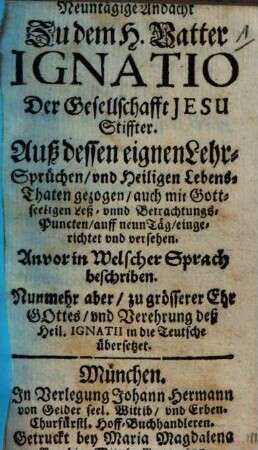 Neuntägige Andacht
Zu dem H. Vatter
IGNATIO
Der Gesellschafft JESU
Stiffter.
Auß dessen eignen Lehr-
Sprüchen/ vnd Heiligen Lebens-
Thaten gezogen/ auch mit Gott-
seeligen Leß- vnnd Betrachtungs-
Puncten/ auff neun Täg/ einge-
richtet vnd versehen.
Anvor in Welscher Sprach
beschriben.
Nunmehr aber/ zu grösserer Ehr
GOttes/ vnd Verehrung deß
Heil. IGNATII in die Teutsche
übersetzet.
München.
In Verlegung Johann Hermann
von Gelder seel. Wittib/ vnd Erben-
Churfürstl. Hoff-Buchhandleren.
Getruckt bey Maria Magdalena